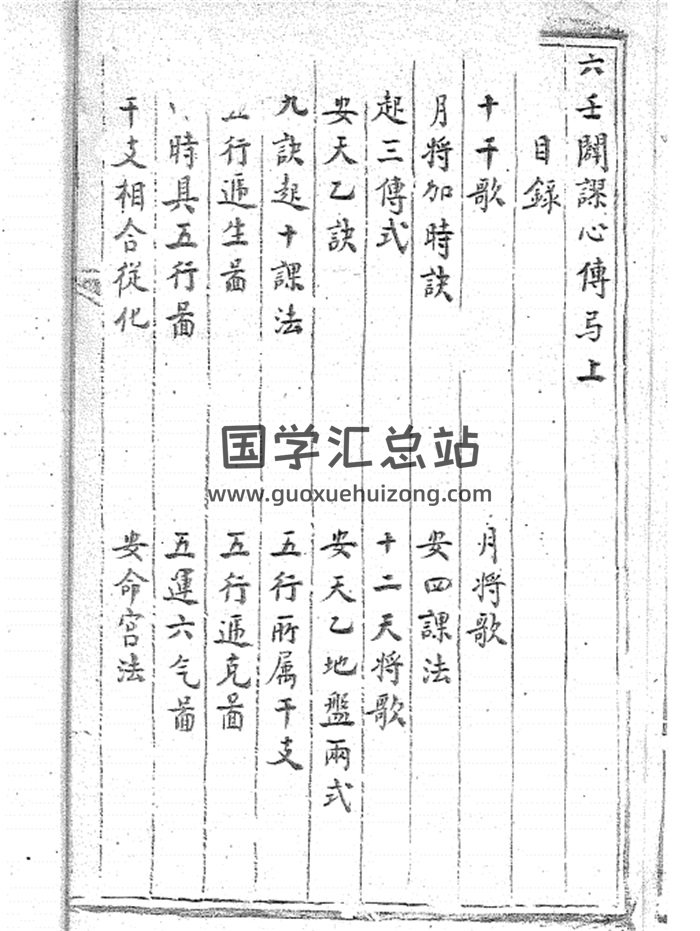 六壬課心傳弓上
目録
十干歌 月将歌
月将加時訣 安四課法
起三傳式 十二天将歌
安天乙訣 安天乙地盤兩式
九訣起十課法 五行所属干支
五行逓生啚 五行逓克啚
時具五行啚 五運六气啚
干支相合從化 安命宮法
国学汇总站
www.guoxuehuizong.com